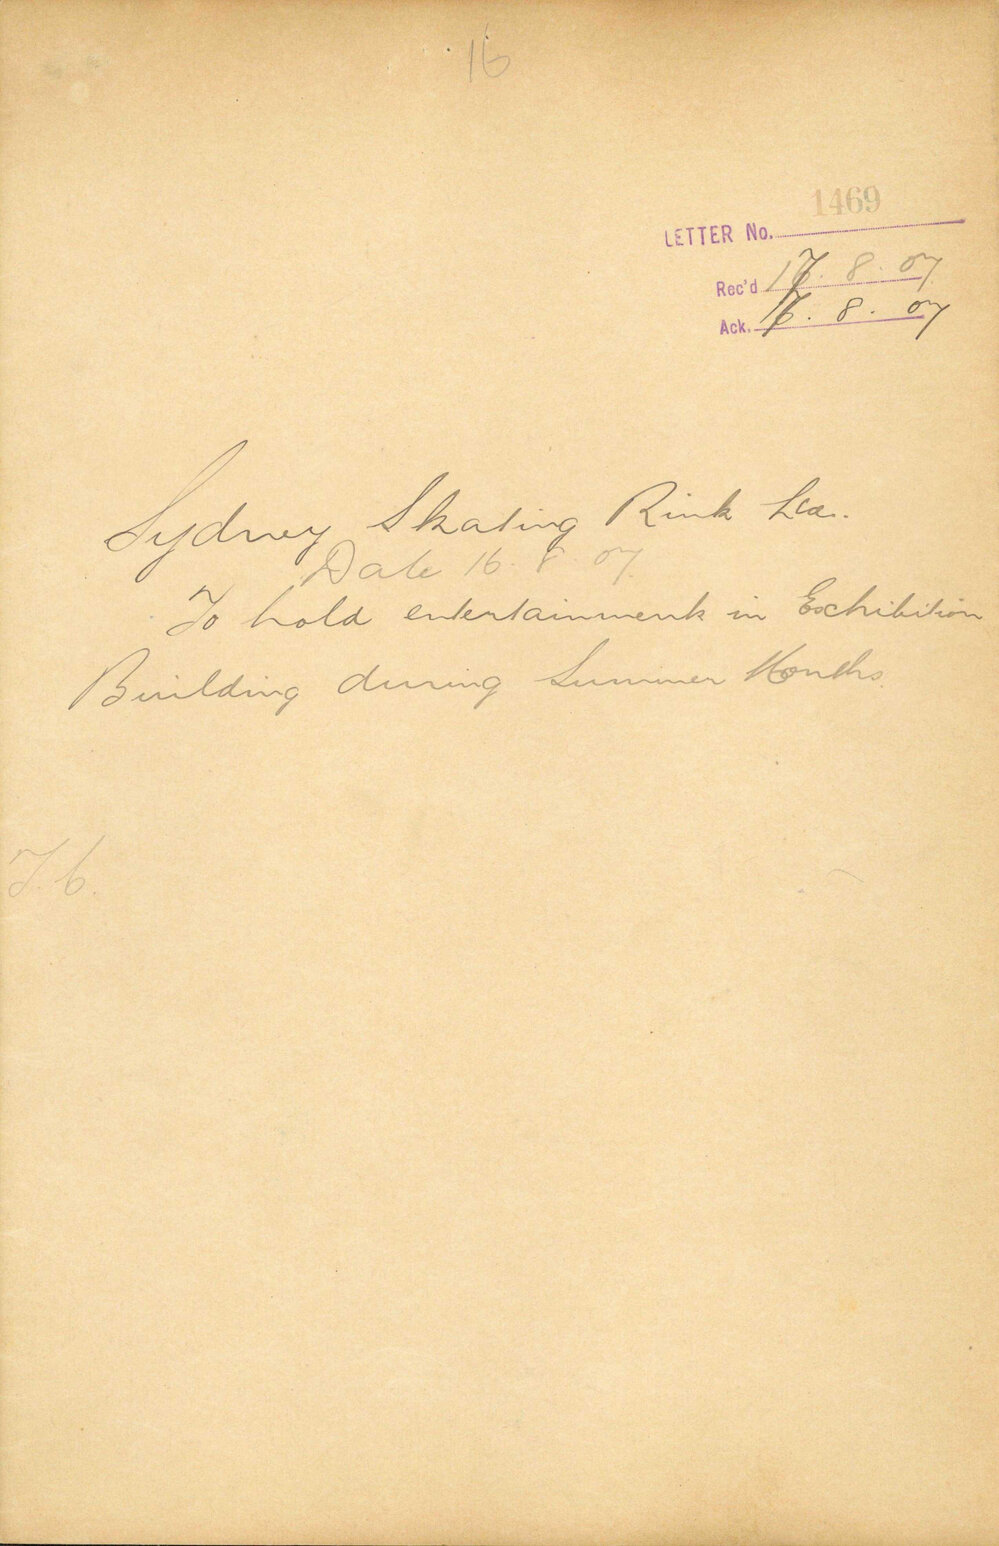 16
1469
LETTER No.
Rec'd 17. 8. 07
Ack. 17. 8. 07
Sydney Skating Rink Ltd.
Date 16. 8. 07
To hold entertainment in Exhibition
Building during Summer Months.